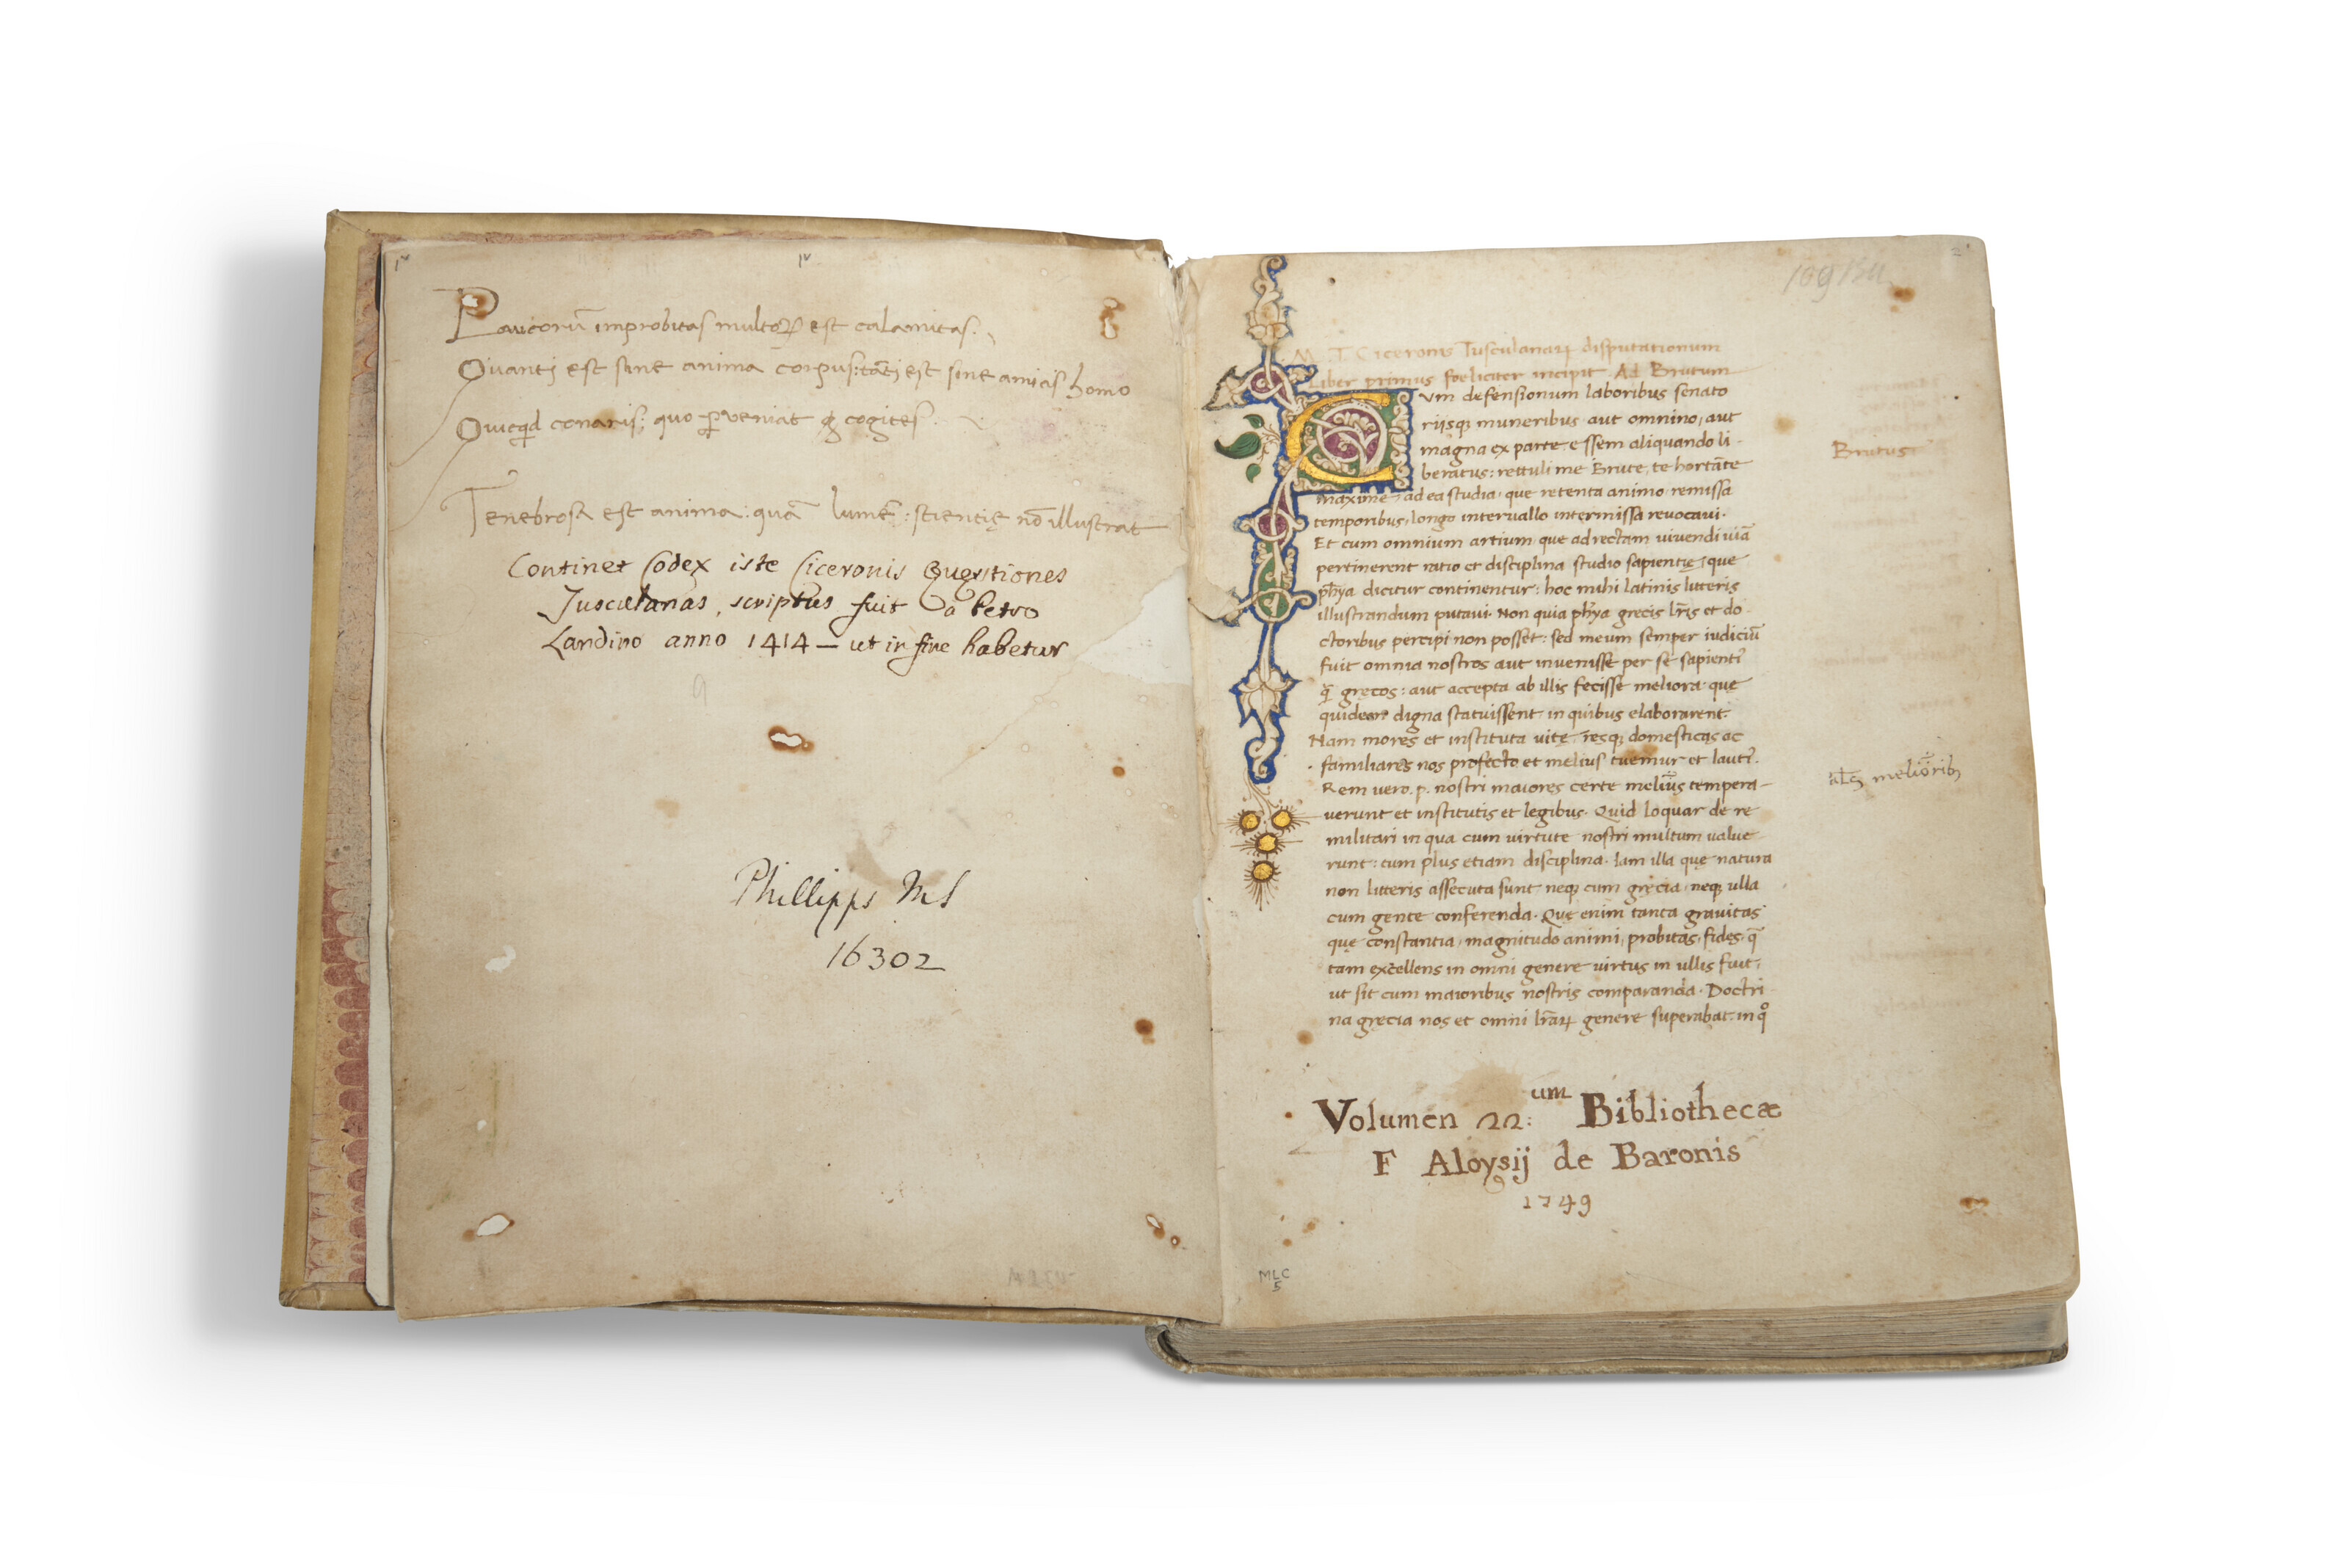 1v
1v
Paucorū improbitas multoꝝ est calamitas.
Quanti est sine anima corpus: tāti est sine amicis homo
Quicqd conaris; quo ꝑveniat cogites.
Tenebrosa est anima: quā lumē: scientię nō illustrat
Continet Codex iste Ciceronis Questiones
Tusculanas, scriptus fuit a Petro
Landino anno 1414 — ut in fine habetur
9
Phillipps MS
16302
2
M. T. Ciceronis Tusculanaꝝ disputationum
Liber primus foeliciter incipit Ad Brutum
CVm defensionum laboribus senato
riisqꝫ muneribus aut omnino, aut
magna ex parte essem aliquando li-
beratus: rettuli me Brute, te hortāte
maxime, ad ea studia, que retenta animo, remissa
temporibus, longo intervallo intermissa revocavi.
Et cum omnium artium, que ad rectam vivendi viā
pertinerent ratio et disciplina studio sapientię, que
ph̄ya dicitur continentur: hoc mihi latinis litteris
illustrandum putavi. Non quia ph̄ya grecis lr̄is et do-
ctoribus percipi non posset: sed meum semper iudiciū
fuit omnia nostros aut invenisse per se sapientī
q̄ gręcos: aut accepta ab illis fecisse meliora que
quidem digna statuissent in quibus elaborarent.
Nam mores et instituta vitę, resqꝫ domesticas ac
familiares nos profecto et melius tuemur et lautī.
Rem vero .p. nostri maiores certe melius tempera-
verunt et institutis et legibus. Quid loquar de re
militari in qua cum virtute nostri multum value
runt: tum plus etiam disciplina. Iam illa quę natura
non litteris assecuta sunt neqꝫ cum gręcia, neqꝫ ulla
cum gente conferenda. Quę enim tanta gravitas
quę constantia, magnitudo animi, probitas, fides, q̄
tam excellens in omni genere virtus in ullis fuit,
ut sit cum maioribus nostris comparanda. Doctri
na gręcia nos et omni lr̄aꝝ genere superabat: in qͦ
Brutus
al̄s meliōribꝫ
Volumen 22:um Bibliothecæ
F Aloysij de Baronis
1749
MLC
5